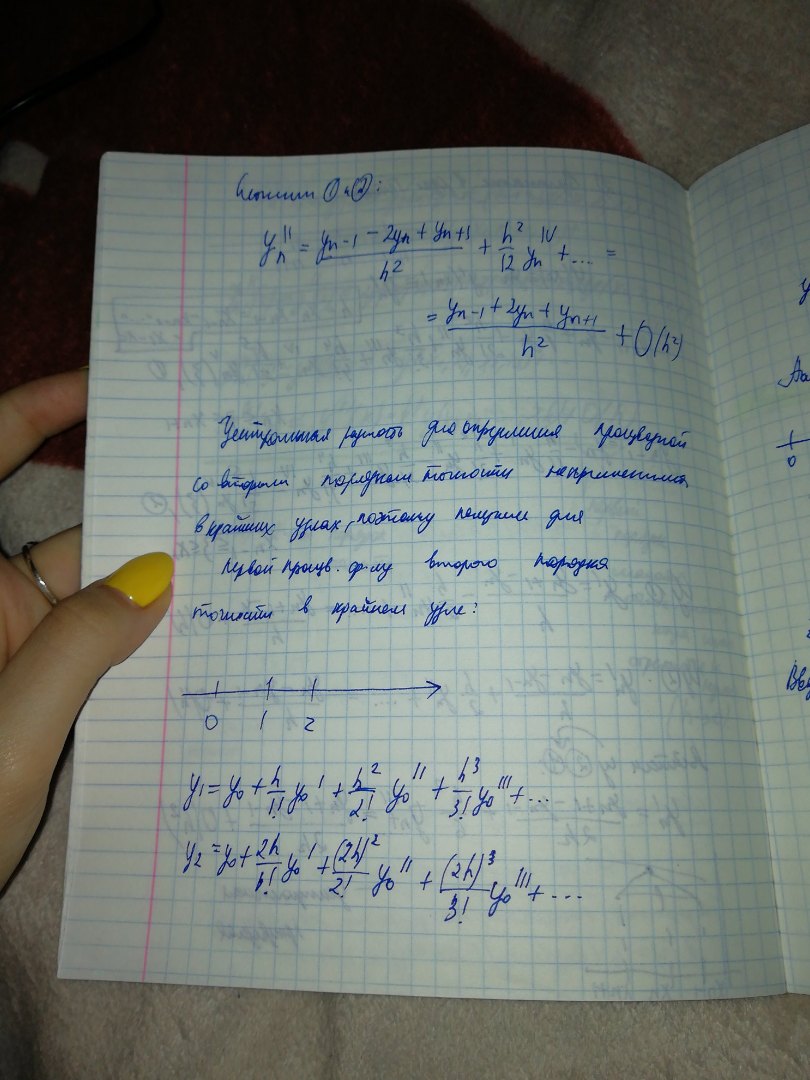 Сложим ① и ②:
yₙ'' = (yₙ₋₁ − 2yₙ + yₙ₊₁)/h² + h²/12 yₙᴵⱽ + ... =
= (yₙ₋₁ + 2yₙ + yₙ₊₁)/h² + O(h²)
Центральная разность для определения производной
со вторым порядком точности неприменима
в крайних узлах, поэтому получим для
первой произв. ф-лу второго порядка
точности в крайнем узле:
0 1 2
y₁ = y₀ + h/1! y₀' + h²/2! y₀'' + h³/3! y₀''' + ...
y₂ = y₀ + 2h/1! y₀' + (2h)²/2! y₀'' + (2h)³/3! y₀''' + ...
0